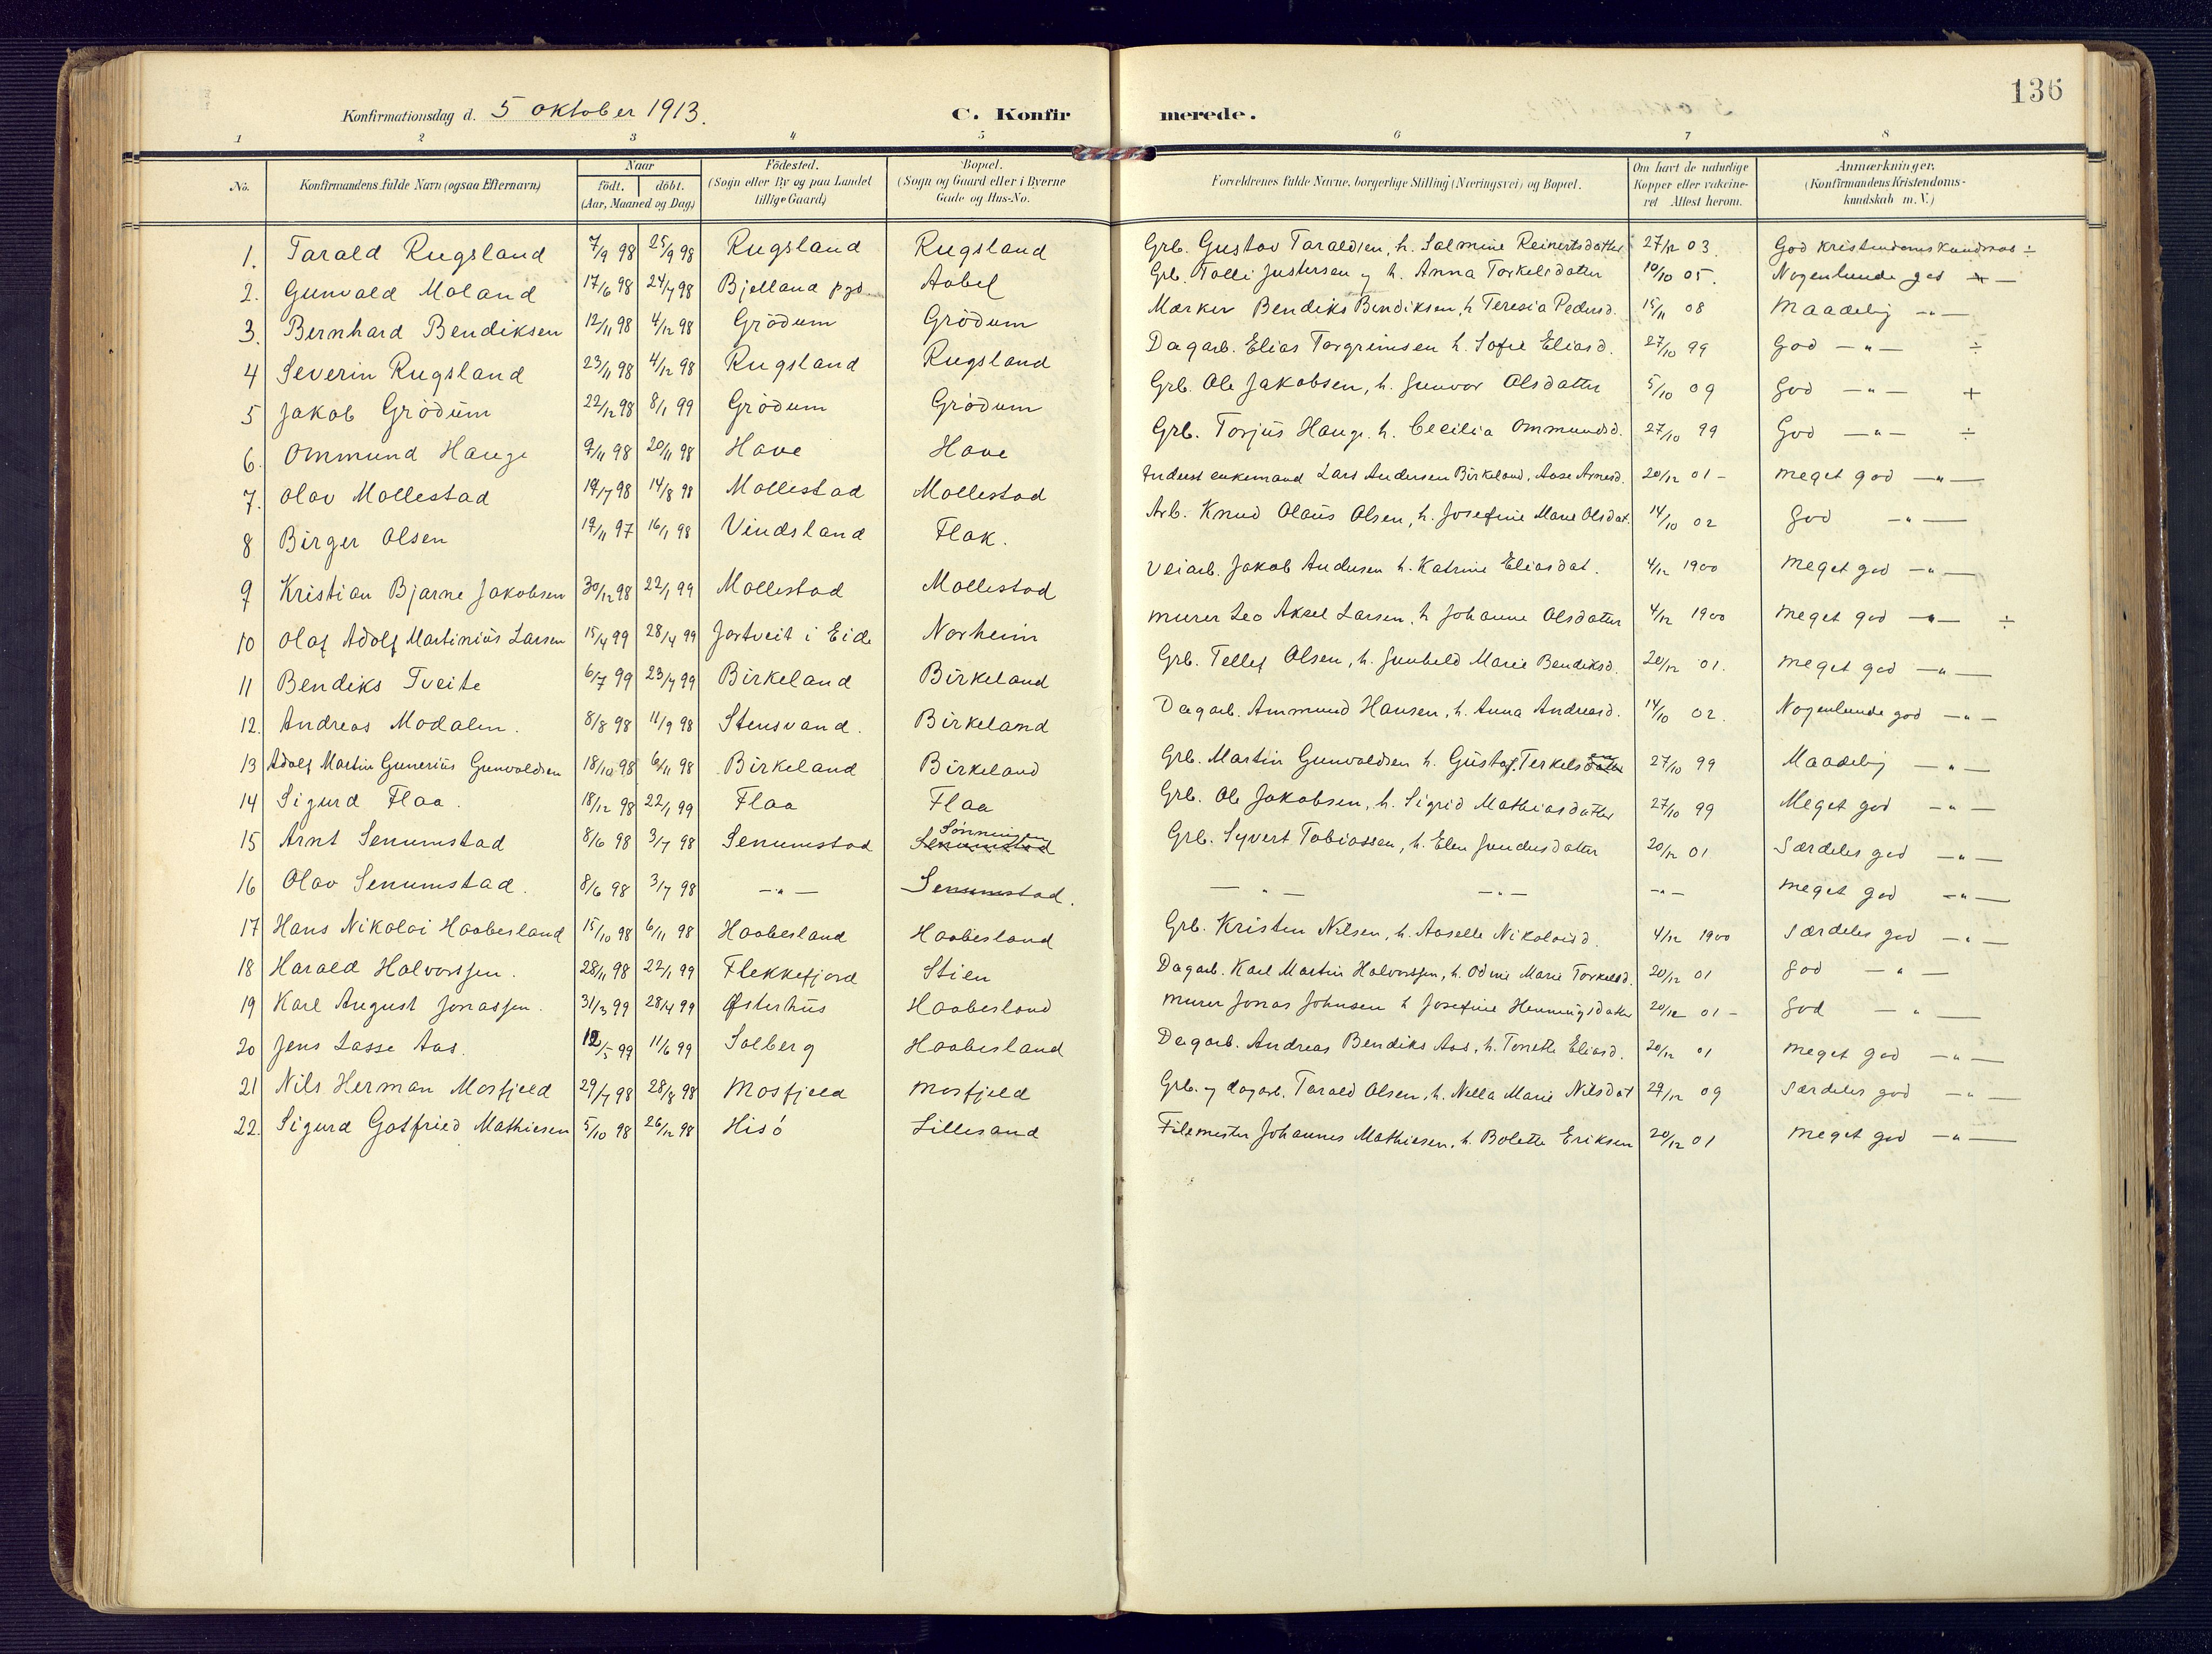 136
Konfirmationsdag d. 5 oktober 1913. C. Konfirmerede.
1 2 3 4 5 6 7 8
No. Konfirmandens fulde Navn (ogsaa Efternavn) Naar födt. döbt. (Aar, Maaned og Dag) Födested. (Sogn eller By og paa Landet tillige Gaard) Bopæl. (Sogn og Gaard eller i Byerne Gade og Hus-No. Forældrenes fulde Navne, borgerlige Stilling (Næringsvei) og Bopæl. Om havt de naturlige Kopper eller vakcineret Attest herom. Anmærkninger. (Konfirmandens Kristendomskundskab m. V.)
1. Tarald Rugsland 7/9 98 25/9 98 Rugsland Rugsland Grb. Gustav Taraldsen, h. Salmine Reinertsdatter 27/12 03. God kristendomskundskab ÷
2. Gunvald Moland 17/6 98 24/7 98 Bjelland pgd. Aabel Grb. Tolli Justersen og h. Anna Torkelsdatter 10/10 05. Nogenlunde god —
3. Bernhard Bendiksen 12/11 98 4/12 98 Grödum Grödum Marker Bendiks Bendiksen, h Teresia Pedersd. 15/11 08 Maadelig —„—
4 Severin Rugsland 23/11 98 4/12 98 Rugsland Rugsland Dagarb. Elias Torgrimsen h. Sofie Eliasd. 27/10 99 God —„— ÷
5 Jakob Grödum 22/12 98 8/1 99 Grödum Grödum Grb. Ole Jakobsen, h. Gunvor Olsdatter 5/10 09 God —„— +
6. Ommund Hauge 9/11 98 20/11 98 Have Have Grb. Torjus Hauge. h. Cecilia Ommundsd. 27/10 99 God —„— ÷
7. Olav Mollestad 19/7 98 14/8 98 Mollestad Mollestad Inderst enkemand Lars Andersen Birkeland, Aase Arnesd. 20/12 01 – meget god —„—
8 Birger Olsen 19/11 97 16/1 98 Vindsland Flak. Arb. Knud Olaus Olsen, h. Josefine Marie Olsdat. 14/10 02 God —„—
9 Kristian Bjarne Jakobsen 30/12 98 22/1 99 Mollestad Mollestad Veiarb. Jakob Andersen h. Katrine Eliasdat. 4/12 1900 meget god —„—
10 Olaf Adolf Martinius Larsen 15/4 99 28/4 99 Jortveit i Eide Norheim murer Leo Aksel Larsen, h Johanne Olsdatter 4/12 1900 meget god —„— ÷
11 Bendiks Tveite 6/7 99 23/7 99 Birkeland Birkeland Grb. Tellef Olsen, h. Gunhild Marie Bendiksd. 20/12 01. meget god —„—
12. Andreas Modalen. 8/8 98 11/9 98 Stensvand. Birkeland Dagarb. Ammund Hansen, h. Anna Andreasd. 14/10 02. Nogenlunde god —„—
13 Adolf Martin Gunerius Gunvaldsen 18/10 98 6/11 98 Birkeland Birkeland Grb. Martin Gunvaldsen h. Gustaf. Terkels 27/10 99 Maadelig —„—
14 Sigurd Flaa. 18/12 98 22/1 99 Flaa Flaa Grb. Ole Jakobsen, h. Sigrid Mathiasdatter 27/10 99 Meget god —„—
15 Arnt Senumstad 8/6 98 3/7 98 Senumstad Sönningen Senumstad Grb. Syvert Tobiassen, h. Elen Gundersdatter 20/12 01 Særdeles god —„—
16 Olav Senumstad. 8/6 98 3/7 98 —„— Senumstad. —„— —„— —„— meget god —„—
17 Hans Nikolai Haabesland 15/10 98 6/11 98 Haabesland Haabesland Grb. Kristen Nilsen, h. Aaselle Nikolaisd. 4/12 1900 særdeles god —„—
18 Harald Halvorssen. 28/11 98 22/1 99 Flekkefjord Stien Dagarb. Karl Martin Halvorssen, h. Odine Marie Torkelsd. 20/12 01 God —„—
19 Karl August Jonassen. 31/3 99 28/4 99 Østerhus Haabesland murer Jonas Johnsen h Josefine Henningsdatter 20/12 01 – God —„—
20 Jens Lasse Aas. 12/5 99 11/6 99 Solberg Haabesland Dagarb. Andreas Bendiks Aas, h. Tonette Eliasd. 20/12 01 meget god —„—
21 Nils Herman Mosfjeld 29/7 98 28/8 98 Mosfjeld Mosfjeld Grb. og dagarb. Tarald Olsen, h. Nella Marie Nilsdat 29/12 09 særdeles god —„—
22. Sigurd Gotfried Mathiesen 5/10 98 26/12 98 Hisö Lillesand Filemester Johannes Mathiesen, h. Bolette Eriksen 20/12 01 meget god —„—